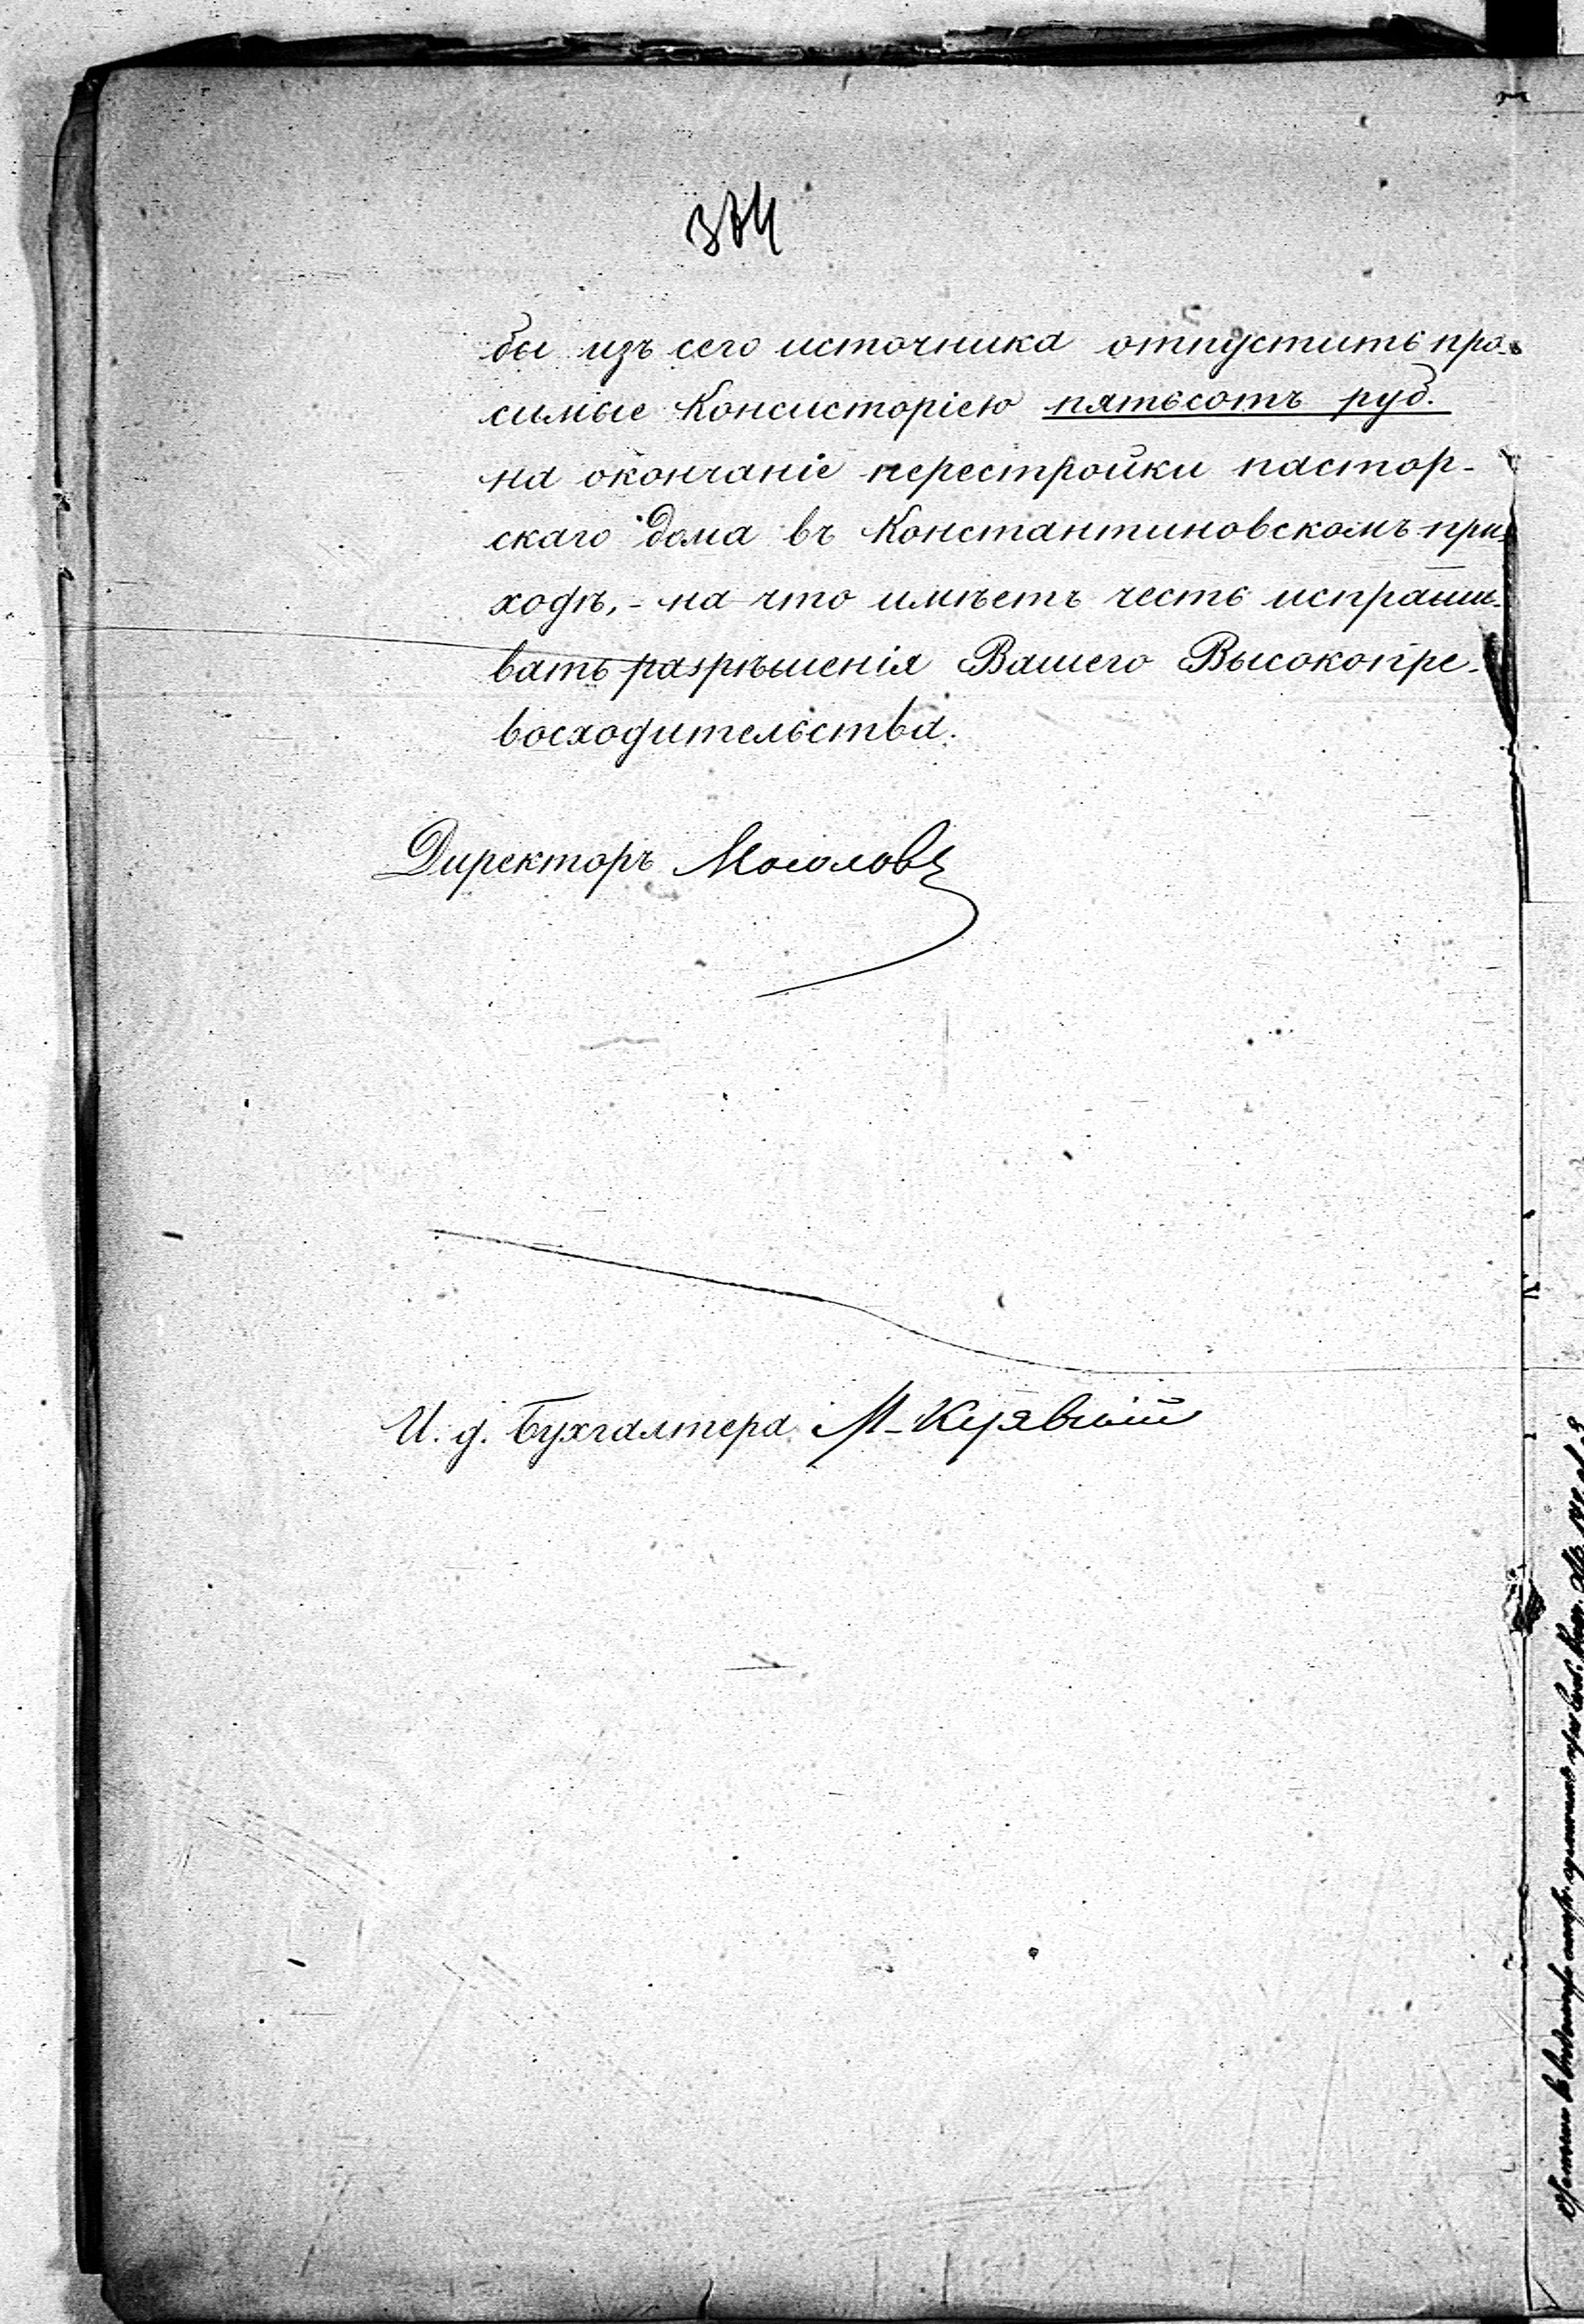 бы изъ сего источника отпустить про-
симые Консисторіею пятьсотъ руб.
на окончаніе перестройки пастор-
скаго дома въ Константиновскомъ при-
ходѣ, - на что имѣетъ честь испраши-
вать разрѣшенія Вашего Высокопре-
восходительства.
Директоръ Мосоловъ
И. д. Бухгалтера М-Куявскій